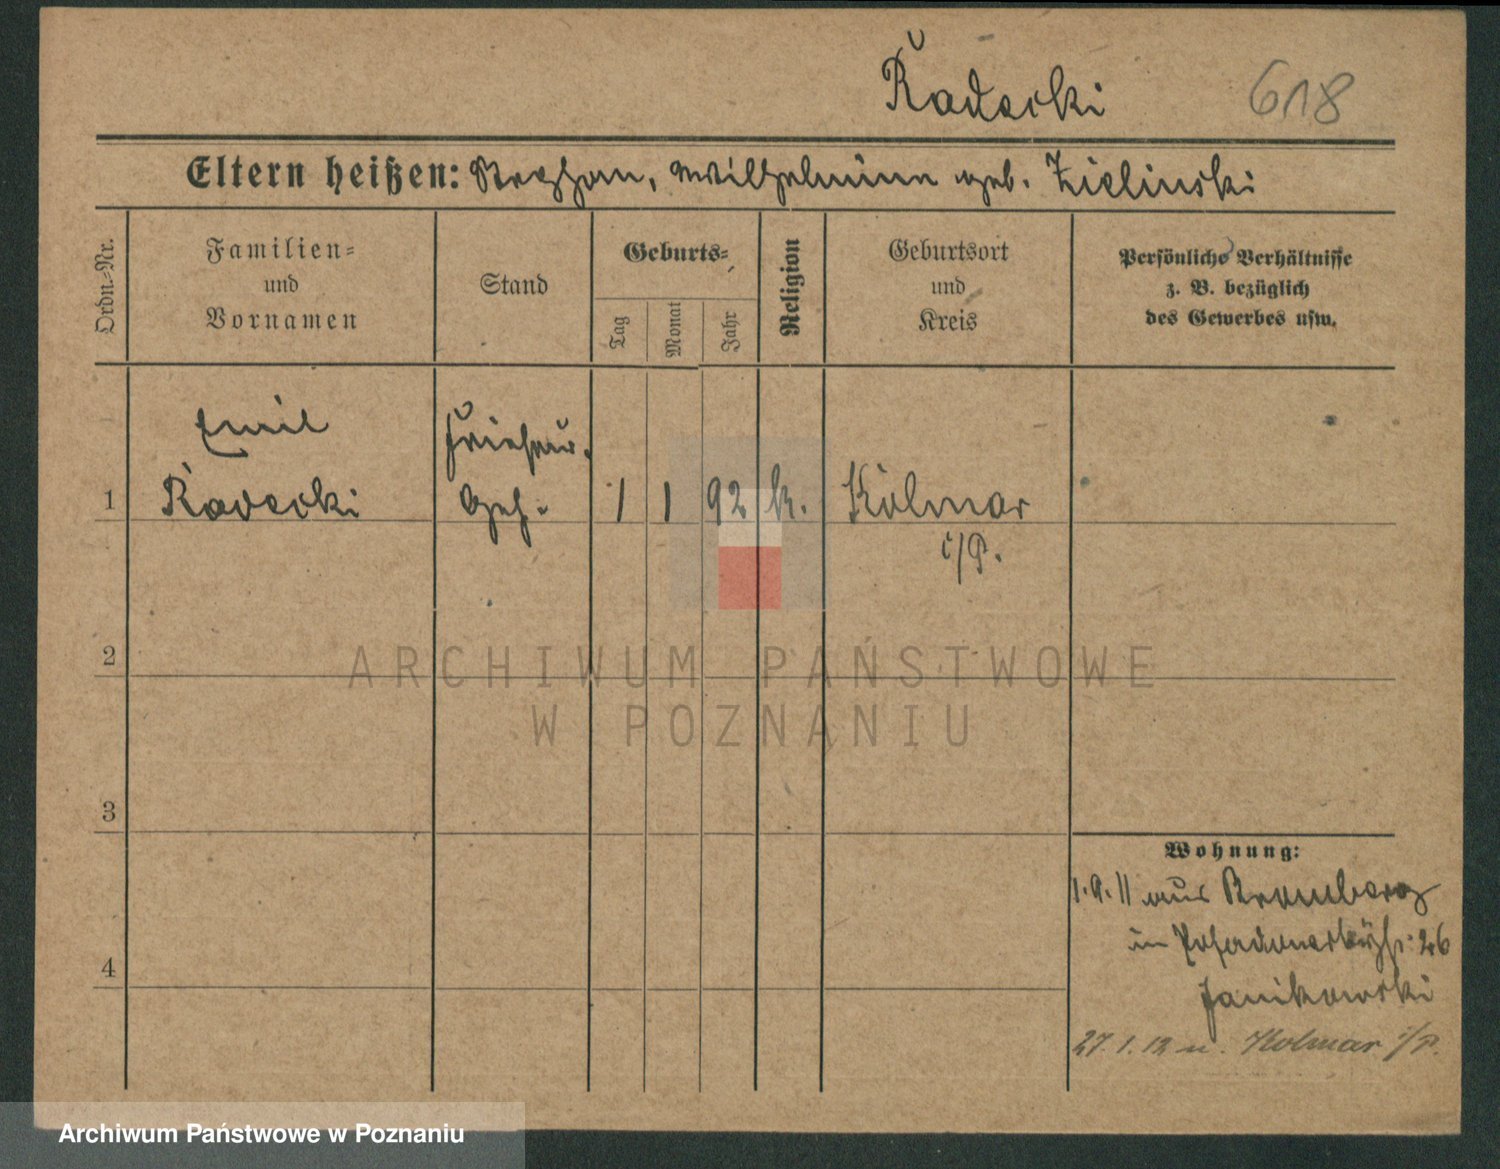 Radecki 618
Eltern heißen: Stephan, Wilhelmine geb. Zielinski
Ordn.-Nr.
Familien-
und
Vornamen
Stand
Geburts-
Tag
Monat
Jahr
Religion
Geburtsort
und
Kreis
Persönliche Verhältnisse
z. B. bezüglich
des Gewerbes usw.
Emil
Radecki
Friseur-
Geh.
1 1 1 92 k. Kolmar
i/P.
ARCHIWUM PAŃSTWOWE
W POZNANIU
2
3
4
Wohnung:
1.9.11 aus Bromberg
in 26
Janikowski
27.1.12 n. Kolmar i/P.
Archiwum Państwowe w Poznaniu